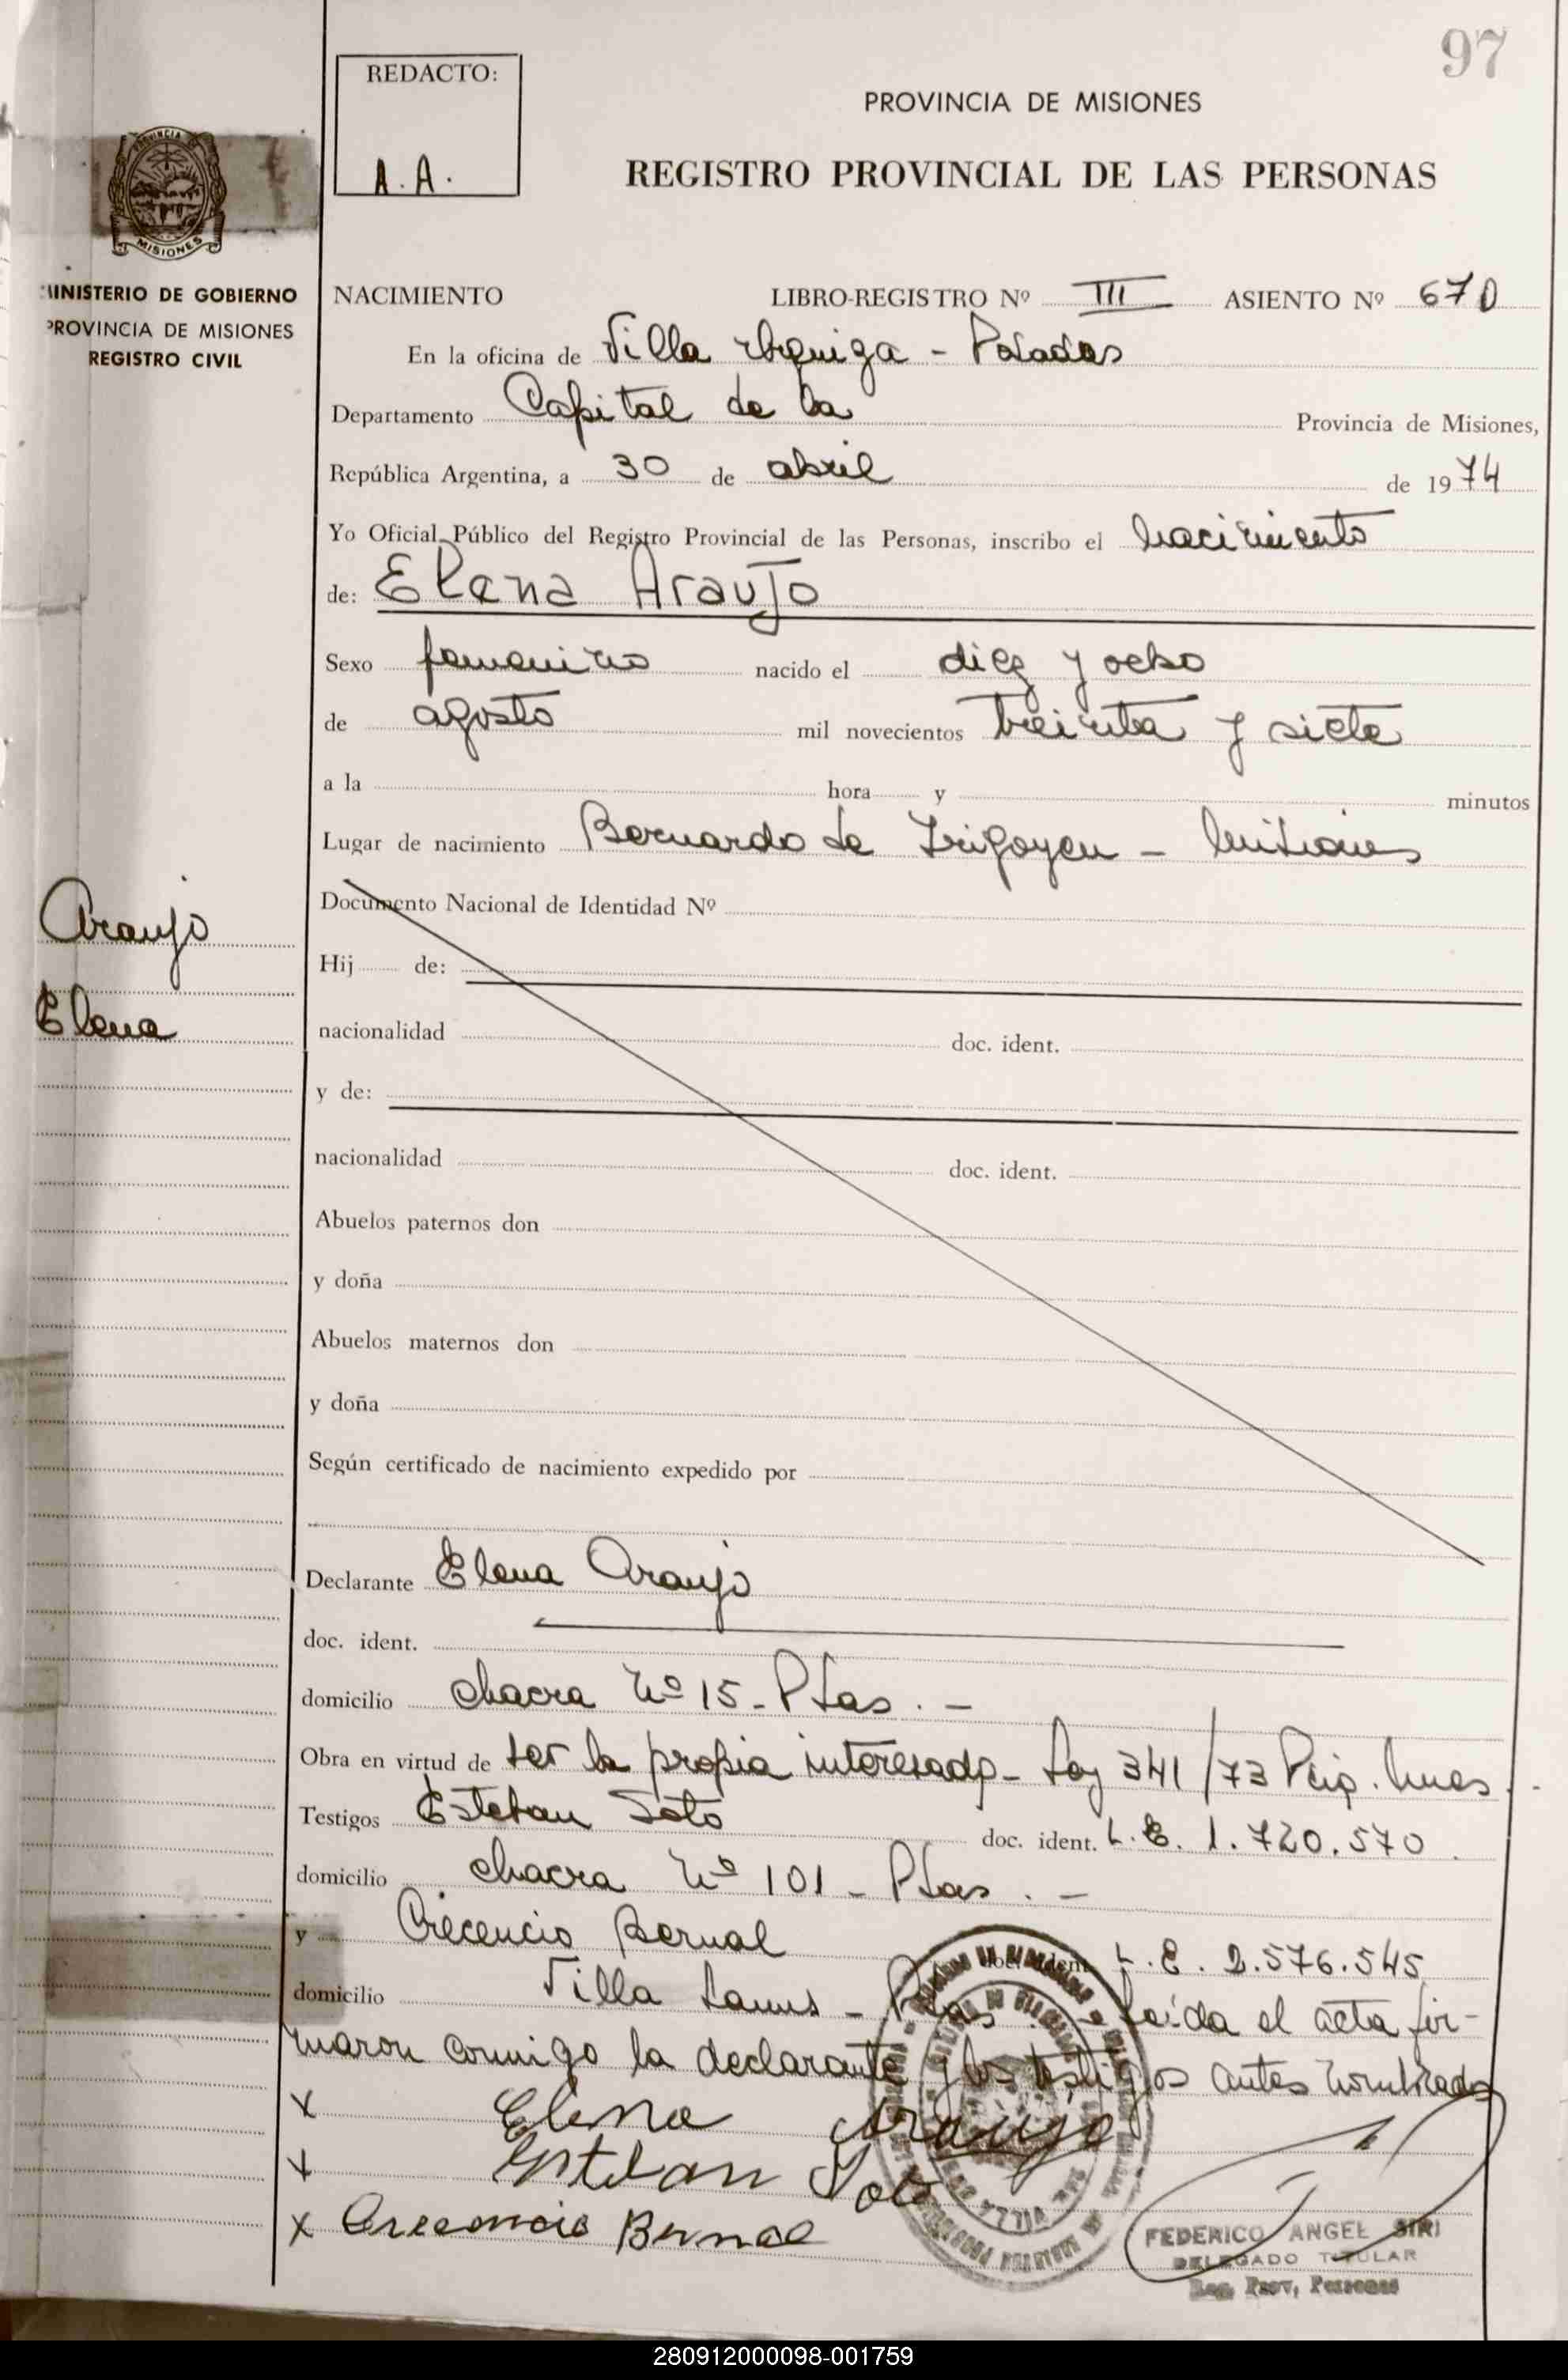 97
REDACTO:
A.A.
PROVINCIA DE MISIONES
REGISTRO PROVINCIAL DE LAS PERSONAS
PROVINCIA DE
MISIONES
MINISTERIO DE GOBIERNO
PROVINCIA DE MISIONES
REGISTRO CIVIL
NACIMIENTO LIBRO-REGISTRO Nº III ASIENTO Nº 670
En la oficina de Villa Urquiza - Posadas
Departamento Capital de la Provincia de Misiones,
República Argentina, a 30 de abril de 1974
Yo Oficial Público del Registro Provincial de las Personas, inscribo el nacimiento
de: Elena Araujo
Sexo femenino nacido el diez y ocho
de agosto mil novecientos treinta y siete
a la hora y minutos
Lugar de nacimiento Bernardo de Irigoyen - Misiones
Araujo
Elena
Documento Nacional de Identidad Nº
Hij de:
nacionalidad doc. ident.
y de:
nacionalidad doc. ident.
Abuelos paternos don
y doña
Abuelos maternos don
y doña
Según certificado de nacimiento expedido por
Declarante Elena Araujo
doc. ident.
domicilio chacra Nº 15 - Pdas. -
Obra en virtud de ser la propia interesada - Ley 341/73
Testigos Esteban Soto doc. ident. L.E. 1.720.570
domicilio chacra Nº 101 - Pdas. -
y Crecencio Bernal doc. ident. L.E. 2.576.545
domicilio Villa Lanus - Pdas. - Leída el acta fir-
maron conmigo la declarante y los testigos antes nombrados
x Elena Araujo
x Esteban Soto
x Crecencio Bernal
FEDERICO ANGEL SIRI
DELEGADO TITULAR
Reg. Prov. Personas
280912000098-001759